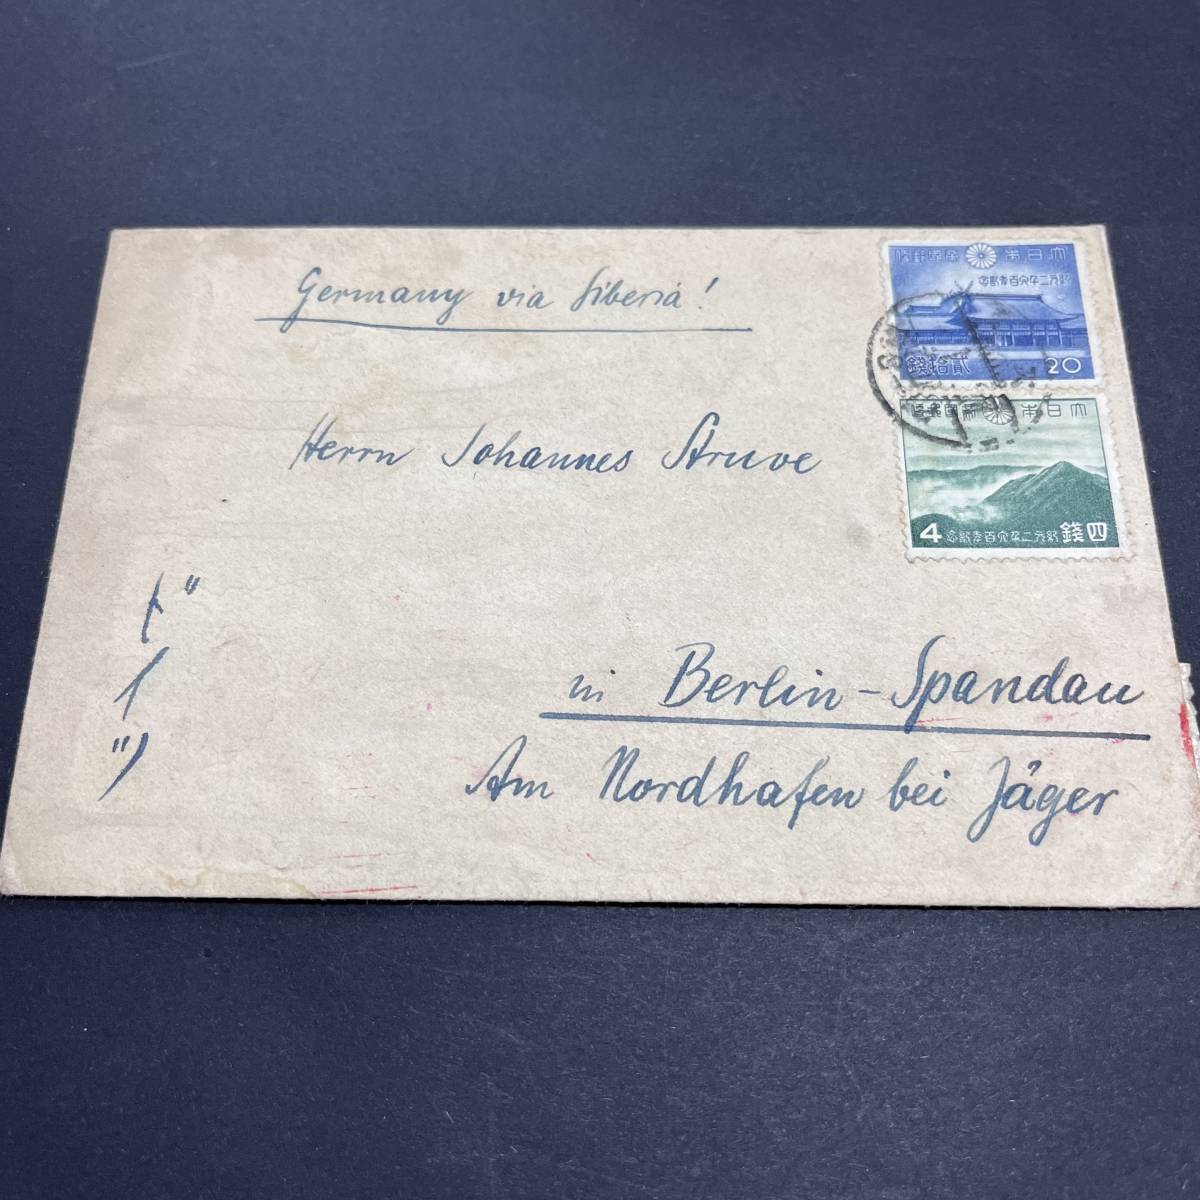 Germany via Siberia!
大日本帝國郵便
紀元二千六百年記念
貳拾錢
20
大日本帝國郵便
4
紀元二千六百年記念
四錢
Herrn Johannes Struve
ドイツ
in Berlin-Spandau
Am Nordhafen bei Jäger